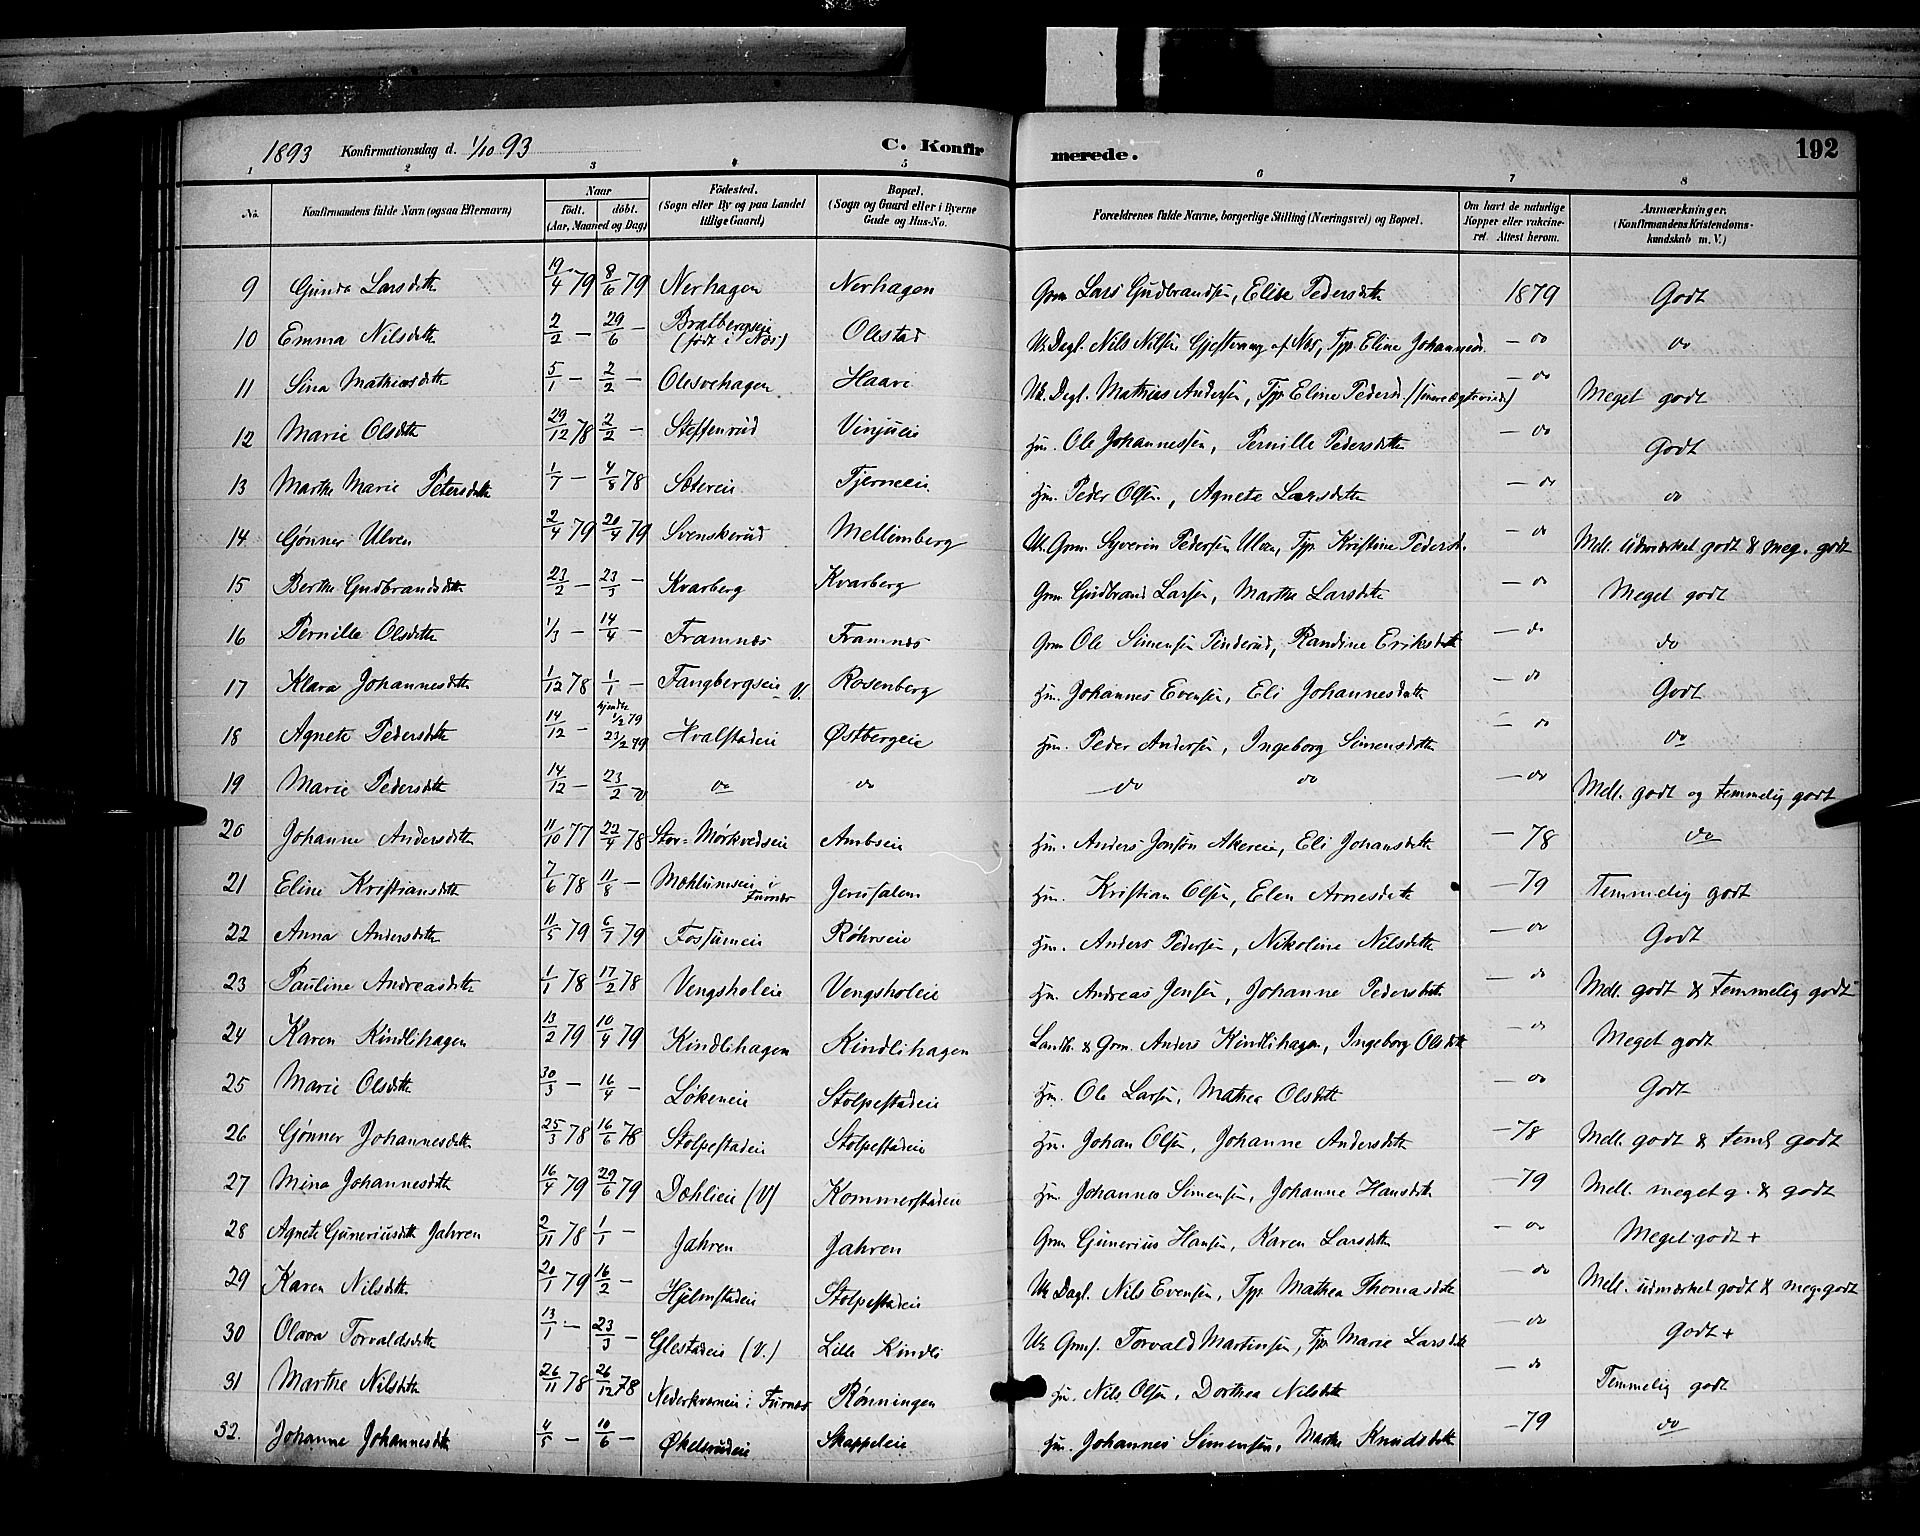 1893 Konfirmationsdag d. 1/10 93 C. Konfirmerede. 192
1 2 3 4 5 6 7 8
No. Konfirmandens fulde Navn (ogsaa Efternavn) Naar födt. döbt. (Aar, Maaned og Dag) Födested. (Sogn eller By og paa Landet tillige Gaard) Bopæl. (Sogn og Gaard eller i Byerne Gade og Hus-No. Forældrenes fulde Navne, borgerlige Stilling (Næringsvei) og Bopæl. Om havt de naturlige Kopper eller vakcineret. Attest herom. Anmærkninger. (Konfirmandens Kristendomskundskab m. V.)
9 Gunda Larsdtr 19/4 79 8/6 79 Nerhagen Nerhagen Grm Lars Gudbrandsen, Elise Pedersdtr 1879 Godt
10 Emma Nilsdttr 2/2 — 29/6 — Bratbergseie (født i Næs) Olestad Uk Dagl. Nils Nilsen Gjestvang af Næs, Tjp. Eline Johannesd. — do do
11 Lina Mathiasdttr 5/1 — 2/2 — Olesvehagen Haave Uk. Dagl. Mathias Andersen, Tjp Eline Pedersd. — do Meget godt
12 Marie Olsdttr 29/12 78 2/2 — Steffenrud Vinjueie Hm. Ole Johannessen, Pernille Pedersdttr — do Godt
13 Marthe Marie Petersdttr 1/7 — 4/8 78 Sætereie Tjerneeie Hm. Peder Olsen, Agnete Larsdttr — do do
14 Gønner Ulven 2/4 79 20/4 79 Svenskerud Mellimberg Uk. Grm. Syverin Pedersen Ulven, Tjp. Kristine Pedersd. — do Mell. udmærket godt & meg. godt
15 Berthe Gudbrandsdttr 23/2 — 23/3 — Kvarberg Kvarberg Grm Gudbrand Larsen, Marthe Larsdttr — do Meget godt
16 Pernille Olsdttr 1/3 — 14/4 — Framnæs Framnæs Grm Ole Simensen Tinderud, Randine Eriksdttr — do do
17 Klara Johannesdttr 1/12 78 1/1 — Fangbergseie V. Rosenberg Hm. Johannes Evensen, Eli Johannesdttr — do Godt
18 Agnete Pedersdttr 14/12 — hjemdbt 1/2 79 23/2 79 Hvalstadeie Østbergeie Hm. Peder Andersen, Ingeborg Simensdttr — do do
19 Marie Pedersdttr 14/12 — 23/2 79 do do do do — do Mell. godt og temmelig godt
20 Johanne Andersdttr 11/10 77 22/4 78 Stor-Mørkvedseie Ambseie Hm. Anders Jonsøn Akereie, Eli Johansdttr — 78 do
21 Eline Kristiansdttr 7/6 78 11/8 — Mæhlumseie i Furnæs Jerusalem Hm. Kristian Olsen, Elen Arnesdttr — 79 Temmelig godt
22 Anna Andersdttr 11/5 79 6/7 79 Fossumeie Røhrseie Hm. Anders Pedersen, Nikoline Nilsdttr — do Godt
23 Pauline Andreasdttr 1/1 78 17/2 78 Vengsholeie Vengsholeie Hm. Andreas Jensen, Johanne Pedersdttr — do Mell. godt & temmelig godt
24 Karen Kindlihagen 13/2 79 10/4 79 Kindlihagen Kindlihagen Landh. & Grm. Anders Kindlihagen, Ingeborg Olsdttr — do Meget godt
25 Marie Olsdttr 30/3 — 16/4 — Løkeneie Stolpestadeie Hm. Ole Larsen, Mathea Olsdttr — do Godt
26 Gønner Johannesdttr 25/3 78 16/6 78 Stolpestadeie Stolpestadeie Hm. Johan Olsen, Johanne Andersdttr — 78 Mell. godt & teml. godt
27 Mina Johannesdttr 16/4 79 29/6 79 Dæhlieie (V) Kommerstadeie Hm. Johannes Simensen, Johanne Hansdttr — 79 Mell. meget g. & godt
28 Agnete Guneriusdttr Jahren 2/11 78 1/1 — Jahren Jahren Grm Gunerius Hansen, Karen Larsdttr — do Meget godt +
29 Karen Nilsdttr 20/1 79 16/2 — Hjelmstadeie Stolpestadeie Uk Dagl. Nils Evensen, Tjp. Mathea Thomasdttr — do Mell. udmærket godt & meg. godt
30 Olava Torvaldsdttr 13/1 — 23/3 — Glestadeie (V.) Lille Kindli Uk Grms. Torvald Martinsen, Tjp Marie Larsdttr — do Godt +
31 Marthe Nilsdttr 26/11 78 26/12 78 Nederkværneie i Furnæs Rønningen Hm. Nils Olsen, Dorthea Nilsdttr — do Temmelig godt
32. Johanne Johannesdttr 4/5 — 10/6 — Økelsrudeie Skappeleie Hm. Johannes Simensen, Marthe Knudsdttr — 79 do